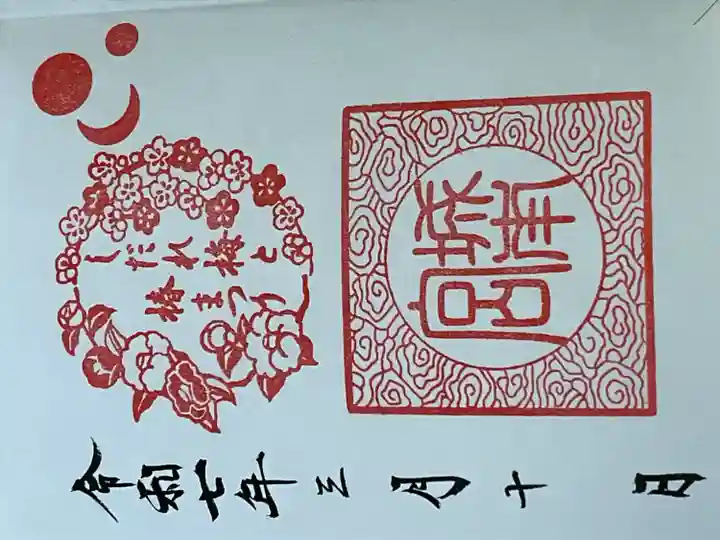 しだれ梅と
椿まつり
令和七年三月十 日